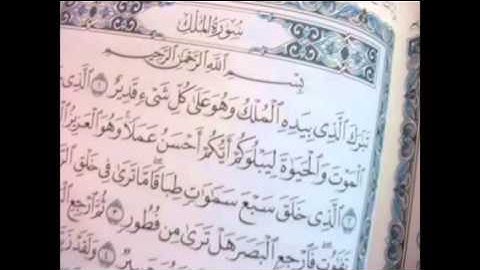 سُورَةُ الْمُلْكِ
بِسْمِ اللَّهِ الرَّحْمَٰنِ الرَّحِيمِ
تَبَٰرَكَ الَّذِى بِيَدِهِ الْمُلْكُ وَهُوَ عَلَىٰ كُلِّ شَىْءٍ قَدِيرٌ ١ الَّذِى
الْمَوْتَ وَالْحَيَوٰةَ لِيَبْلُوَكُمْ أَيُّكُمْ أَحْسَنُ عَمَلًا وَهُوَ الْعَزِيزُ
٢ الَّذِى خَلَقَ سَبْعَ سَمَٰوَٰتٍ طِبَاقًا مَّا تَرَىٰ فِى خَلْقِ
تَفَٰوُتٍ فَارْجِعِ الْبَصَرَ هَلْ تَرَىٰ مِن فُطُورٍ ٣ ثُمَّ ارْجِعِ
٤ وَلَقَدْ